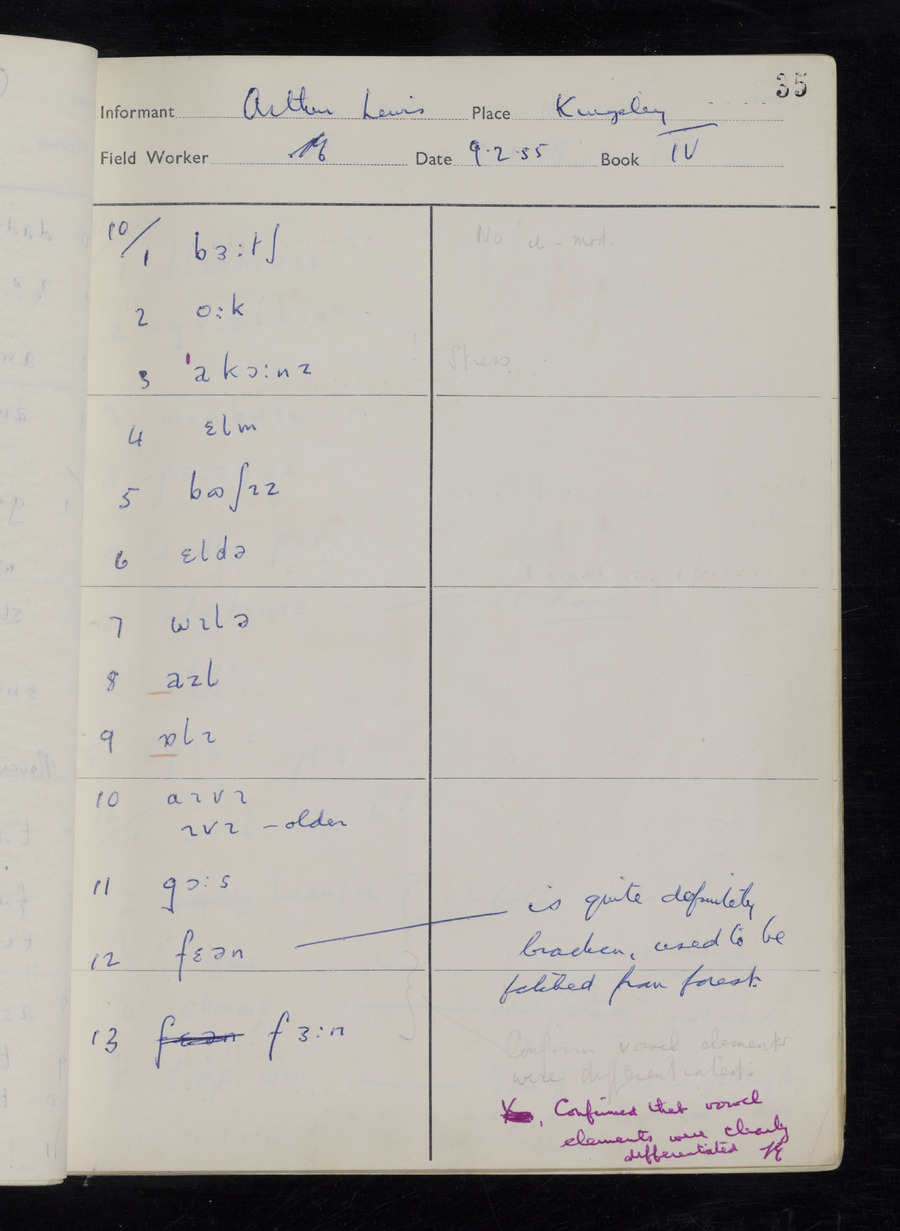 35
Informant Arthur Lewis Place Kingsley
Field Worker Date 9·2·55 Book IV
10/1 bɜ:tʃ
No mod.
2 o:k
3 'akɔ:nz
Stress
4 ɛlm
5 bʊʃɪz
6 ɛldə
7 wɪlə
8 azl
9 ɒlɪ
10 aɪvɪ
ɪvɪ – older
11 gɔ:s
12 fɛən
is quite definitely
bracken, used to be
fetched from forest.
13 fɛən fɜ:n
Confirm vowel elements
were differentiated.
Yes. Confirmed that vowel
elements were clearly
differentiated